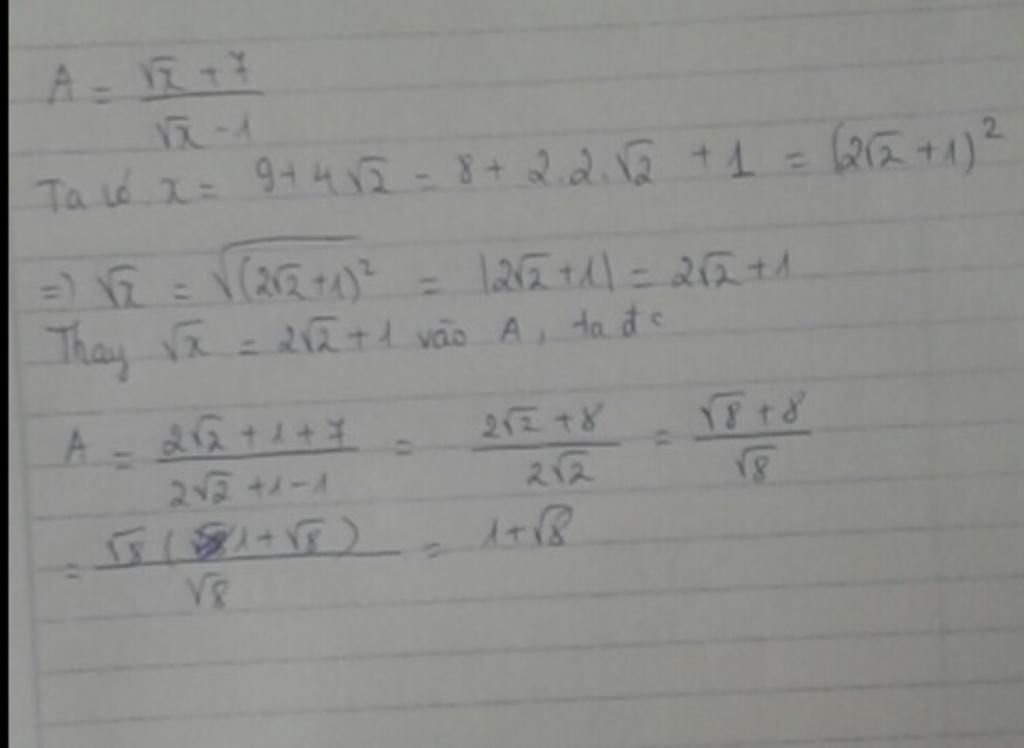 A = (√x + 7)/(√x - 1)
Ta có x = 9 + 4√2 = 8 + 2.2.√2 + 1 = (2√2 + 1)²
=) √x = √(2√2+1)² = |2√2+1| = 2√2 + 1
Thay √x = 2√2 + 1 vào A, ta đc
A = (2√2 + 1 + 7)/(2√2 + 1 - 1) = (2√2 + 8)/(2√2) = (√8 + 8)/√8
= √8(1 + √8)/√8 = 1 + √8